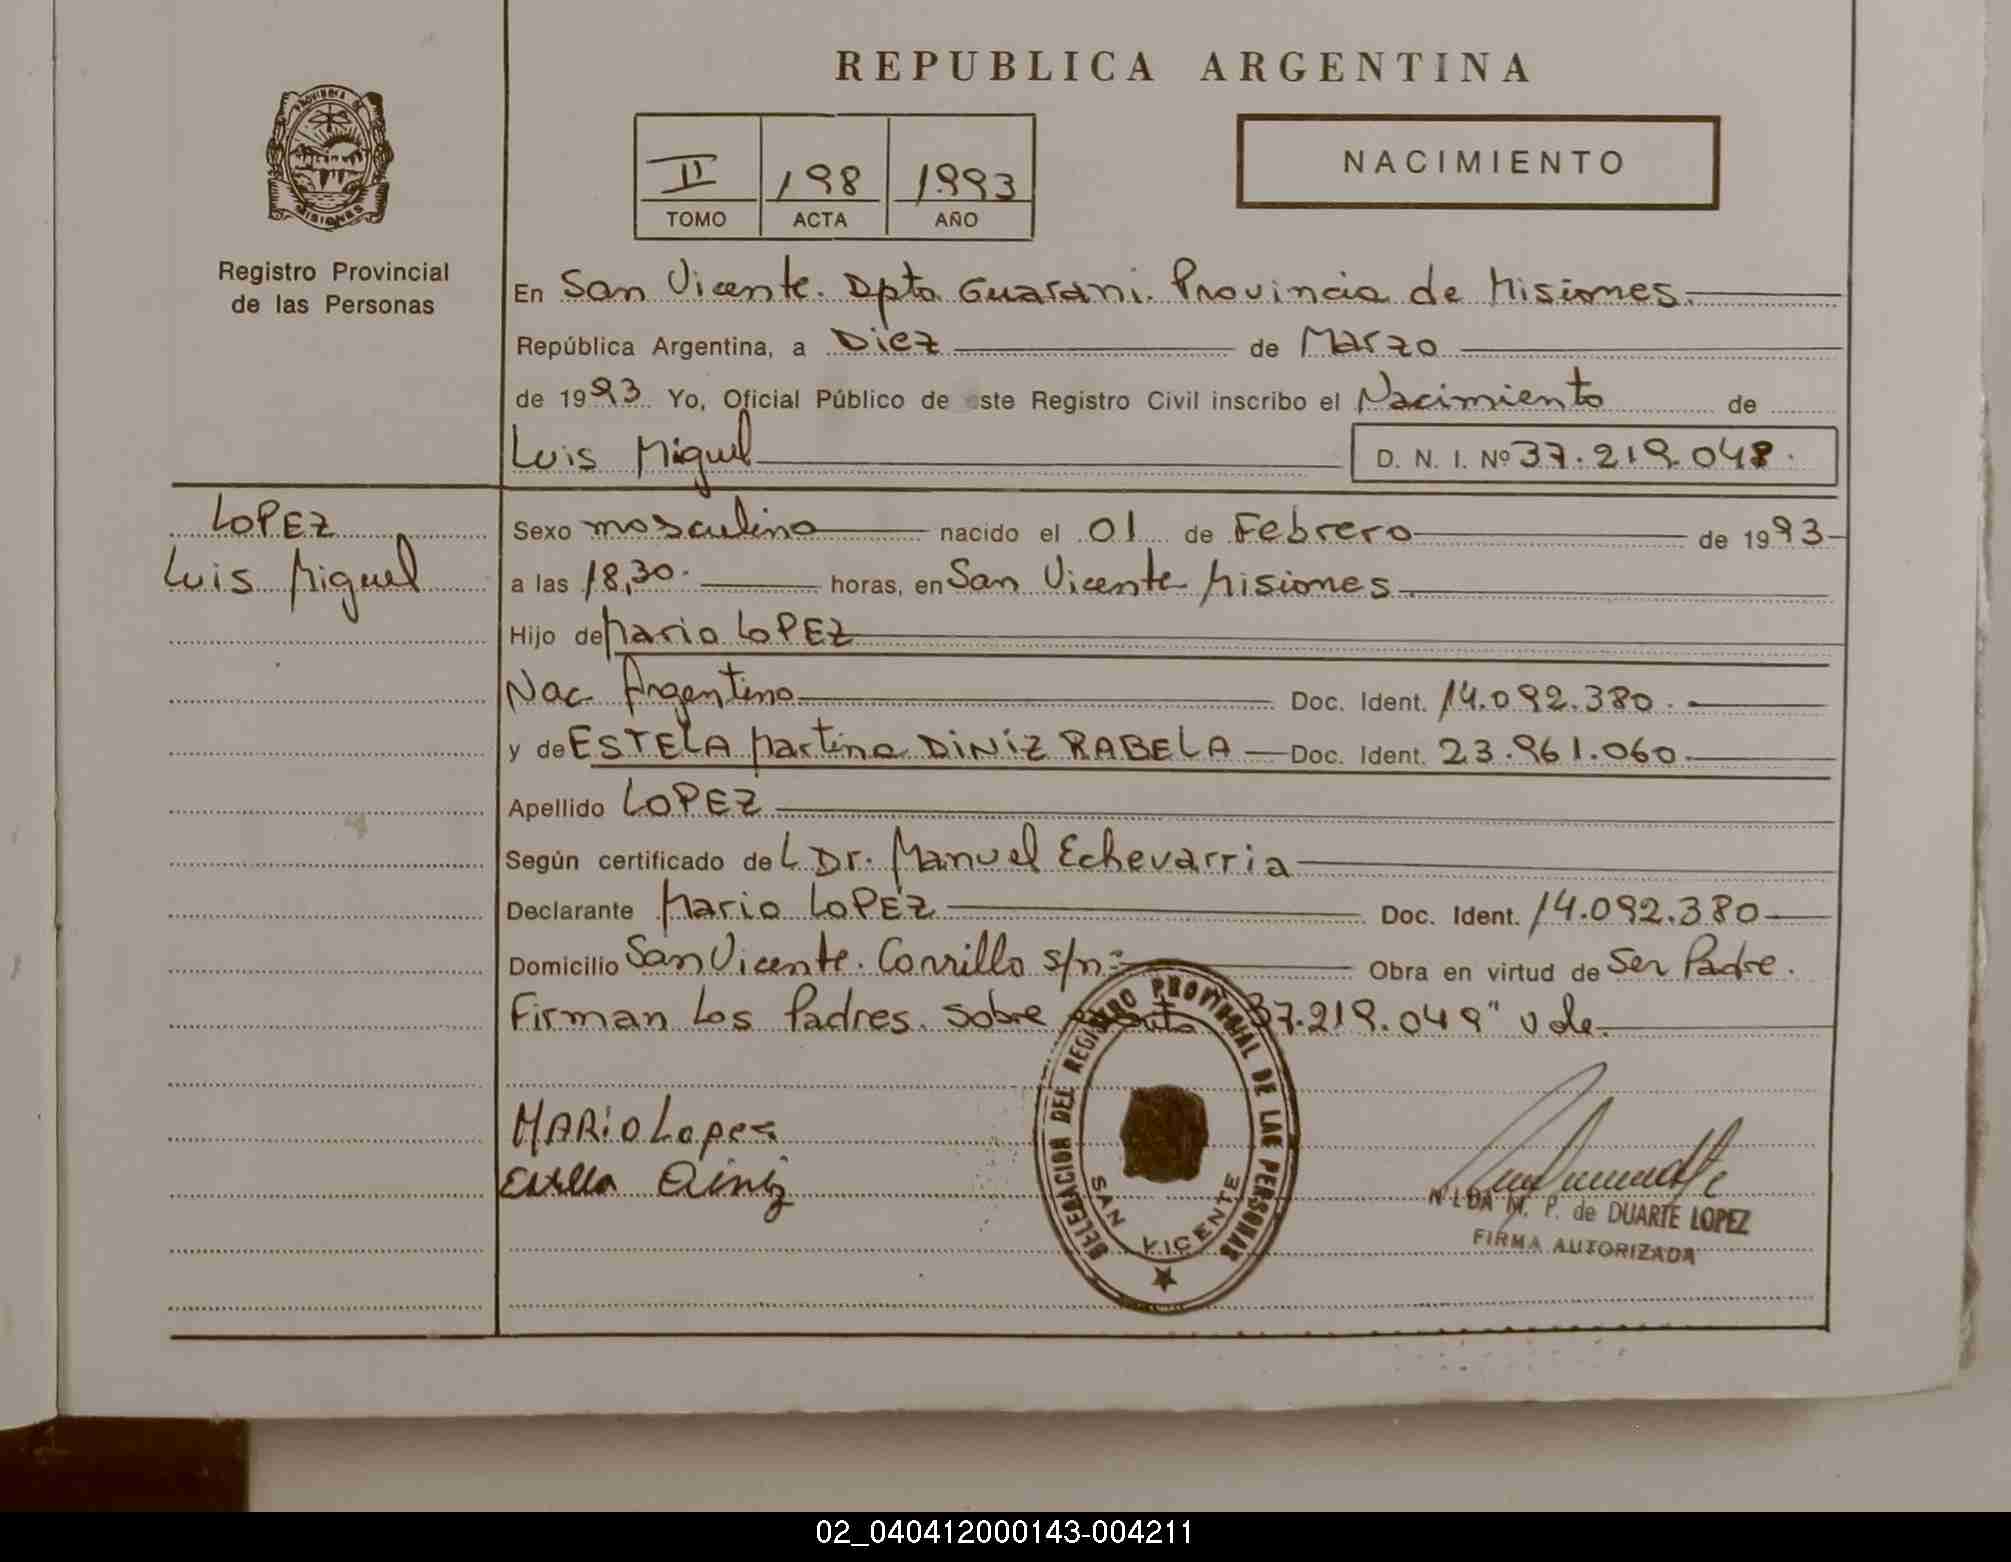 REPUBLICA ARGENTINA
PROVINCIA DE MISIONES
Registro Provincial
de las Personas
II 198 1993
TOMO ACTA AÑO
NACIMIENTO
En San Vicente. Dpto Guarani. Provincia de Misiones.
República Argentina, a Diez de Marzo
de 1993 Yo, Oficial Público de este Registro Civil inscribo el Nacimiento de
Luis Miguel D. N. I. Nº 37.219.048.
LOPEZ
Luis Miguel
Sexo masculino nacido el 01 de Febrero de 1993
a las 18,30. horas, en San Vicente Misiones
Hijo de Mario LOPEZ
Nac. Argentino Doc. Ident. 14.092.380.
y de ESTELA Martina DINIZ RABELA Doc. Ident. 23.961.060
Apellido LOPEZ
Según certificado de L Dr. Manuel Echevarria
Declarante Mario LOPEZ Doc. Ident. 14.092.380
Domicilio San Vicente. Corrillo s/n: Obra en virtud de Ser Padre.
Firman Los Padres. Sobre 37.219.049" vale.
MARIO Lopez
Estella Diniz
DELEGACION DEL REGISTRO PROVINCIAL DE LAS PERSONAS
SAN VICENTE
NILDA M. P. de DUARTE LOPEZ
FIRMA AUTORIZADA
02_040412000143-004211